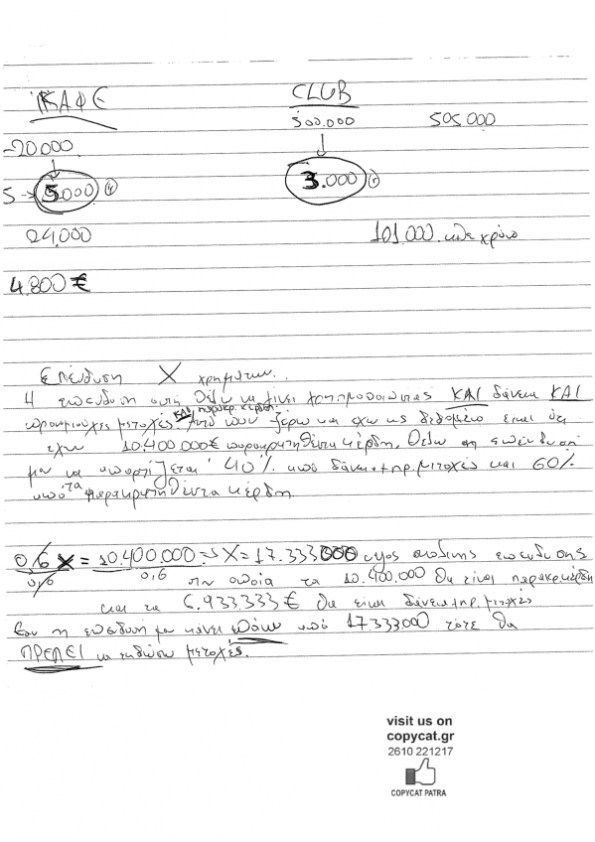 ΚΑΦΕ CLUB
-20.000 300.000 505.000
5 → 5.000 3.000
24.000 101.000 κάθε χρόνο
4.800 €
Επένδυση X χρημάτων.
Η επένδυση αυτή θέλω να γίνει χρησιμοποιώντας ΚΑΙ δάνεια ΚΑΙ
προνομιούχες μετοχές ΚΑΙ παρακρ. κέρδη. Αυτό που ξέρω και έχω ως δεδομένο είναι ότι
έχω 10.400.000€ παρακρατηθέντα κέρδη. Θέλω η επένδυσή
μου να απαρτίζεται 40% από δάνεια+πρ.μετοχές και 60%
από τα παρακρατηθέντα κέρδη.
0,6 X = 10.400.000 => X = 17.333.000 ύψος επένδυσης
0,6 0,6 την οποία τα 10.400.000 θα είναι παρακρ.κέρδη
και τα 6.933.333 € θα είναι δάνεια+πρ.μετοχές
Εαν η επένδυσή μου κάνει πάνω από 17.333.000 τότε θα
ΠΡΕΠΕΙ να εκδώσω μετοχές.
visit us on
copycat.gr
2610 221217
COPYCAT PATRA